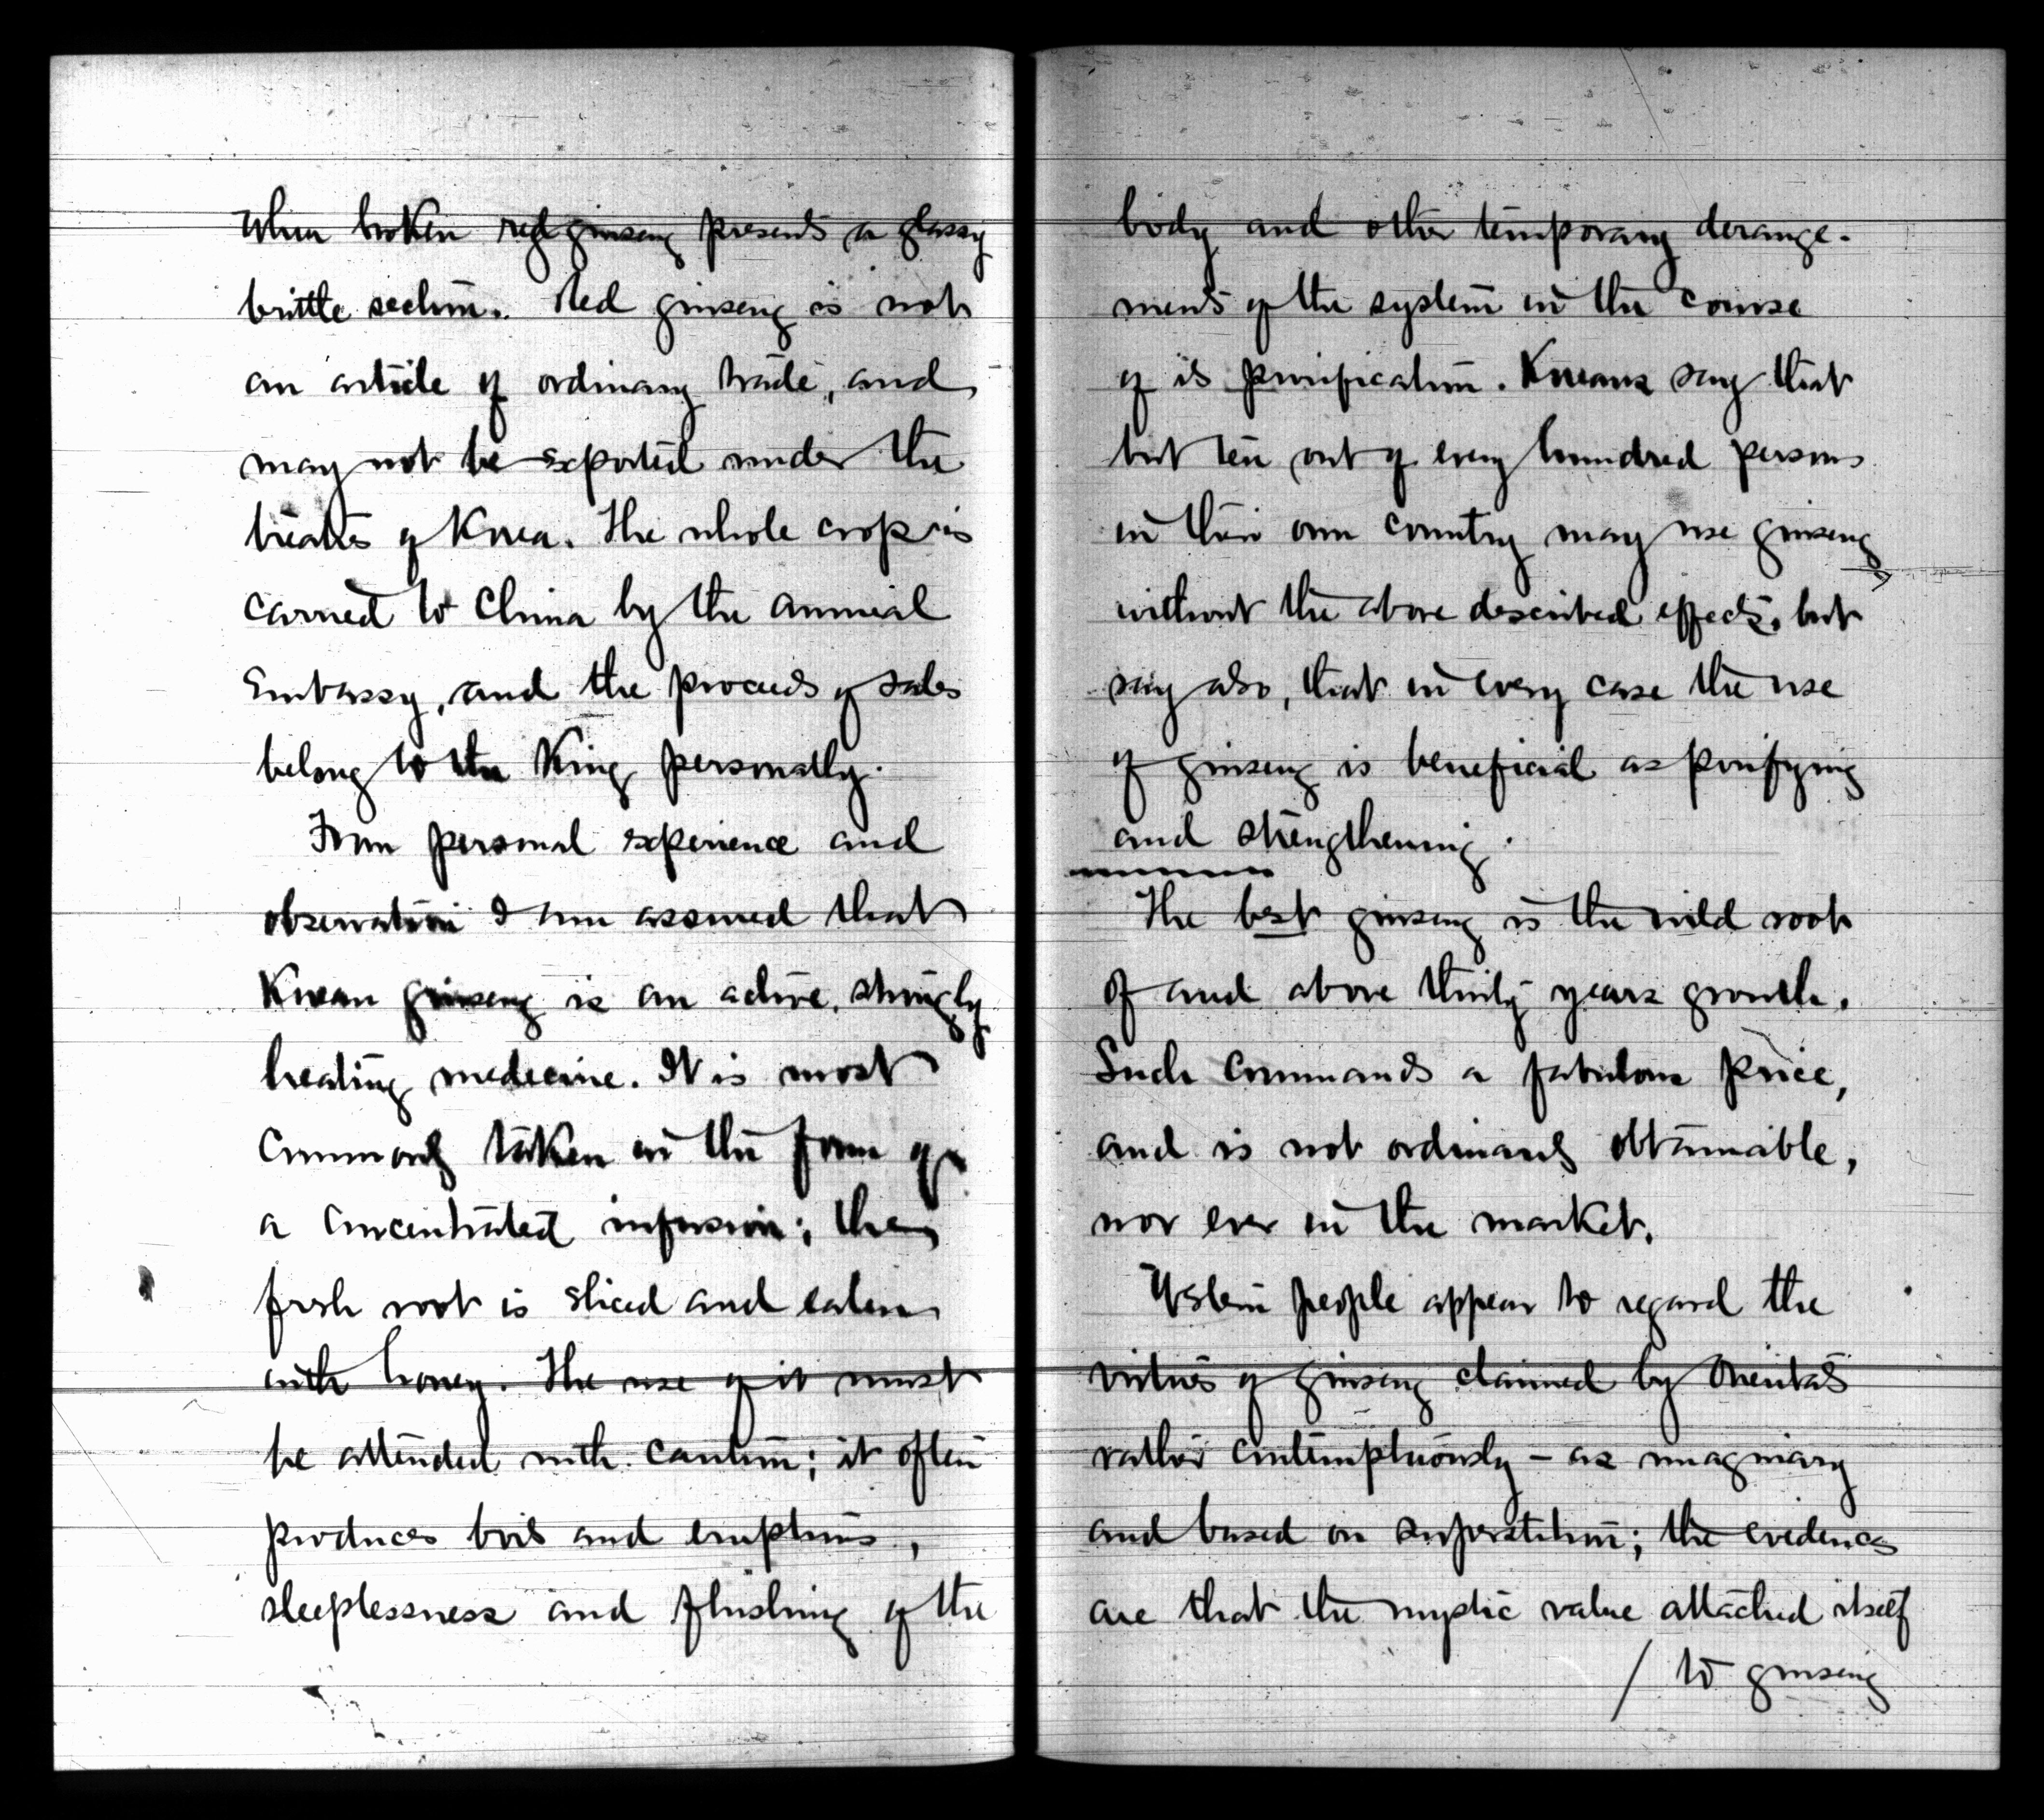 When broken red ginseng presents a glassy
brittle section. Red ginseng is not
an article of ordinary trade, and
may not be exported under the
treaties of Korea. The whole crop is
carried to China by the annual
Embassy, and the proceeds of sales
belong to the King personally.
From personal experience and
observation I am assured that
Korean ginseng is an active, strongly
heating medicine. It is most
commonly taken in the form of
a concentrated infusion; the
fresh root is sliced and eaten
with honey. The use of it must
be attended with caution; it often
produces boils and eruptions,
sleeplessness and flushing of the
body and other temporary derange-
ments of the system in the course
of its purification. Koreans say that
but ten out of every hundred persons
in their own country may use ginseng
without the above described effects, but
say also, that in every case the use
of ginseng is beneficial as purifying
and strengthening.
The best ginseng is the wild root
of and above thirty years growth.
Such commands a fabulous price,
and is not ordinarily obtainable,
nor ever in the market.
Western people appear to regard the
virtues of ginseng claimed by Orientals
rather contemptuously – as imaginary
and based on superstition; the evidences
are that the mystic value attached itself
/ to ginseng